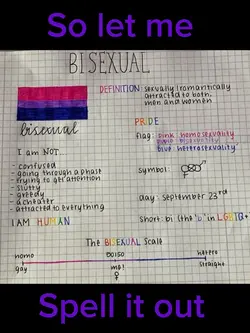 So let me
BISEXUAL
DEFINITION: sexually/romantically
attracted to both
men and women
PRIDE
flag: pink: homosexuality
purple: bisexuality
blue: heterosexuality
bisexual
I am NOT
- confused
- going through a phase
- trying to get attention
- slutty
- greedy
- a cheater
- attracted to everything
symbol:
day: september 23rd
I AM HUMAN
short: bi (the 'b' in LGBTQ+
The BISEXUAL Scale
homo
50/50
hetero
gay
me!
straight
Spell it out